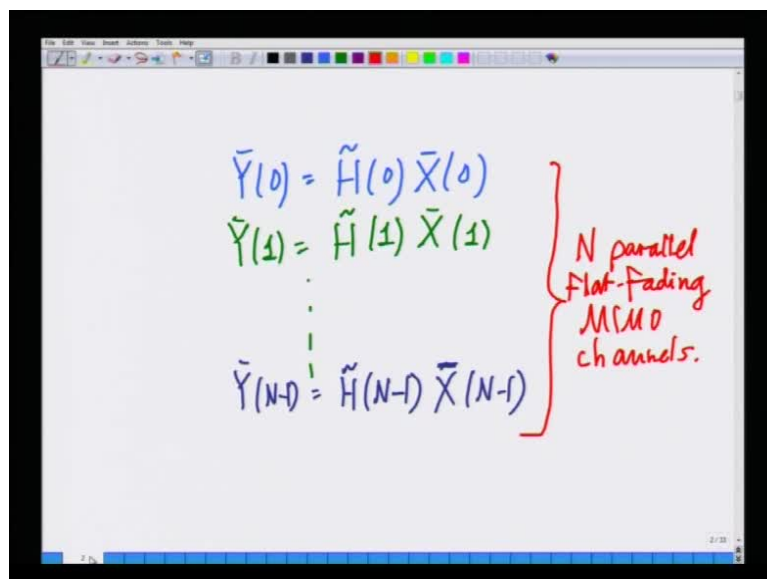 File Edit View Insert Actions Tools Help
B I
Ȳ(0) = H̃(0) X̄(0)
Ȳ(1) = H̃(1) X̄(1)
Ȳ(N-1) = H̃(N-1) X̄(N-1)
N parallel
Flat-Fading
MIMO
channels.
2/33
2